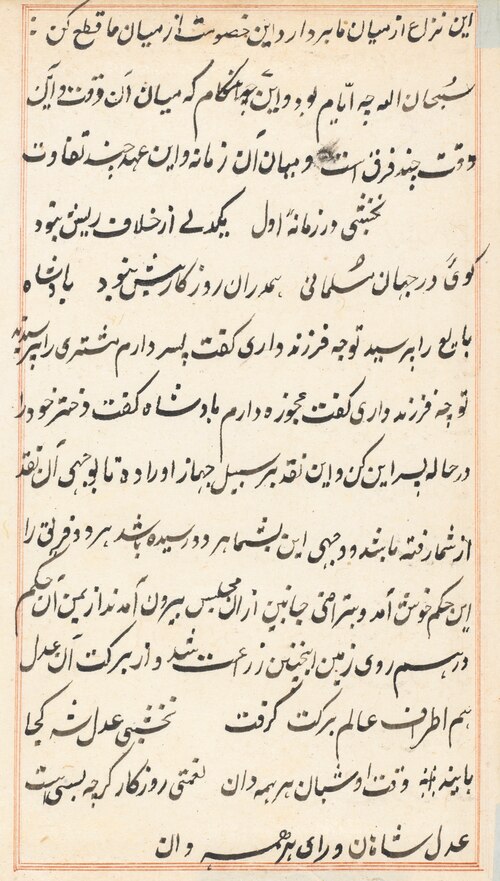 این نزاع از میان ما بردار و این خصومت از میان ما قطع کن
سبحان الله چه ایام بود و این چه هنکام که میان آن وقت و این
وقت چند فرق است و میان آن زمانه و این عهد چند تفاوت
نخشبی در زمانهٔ اول یکدلے از خلاف ریش نبود
کوئی در جهان مسلمانی همدران روزکار بیش نبود بادشاه
بایع را پرسید تو چه فرزند داری کفت پسر دارم مشتری را پرسید
تو چه فرزند داری کفت عجوزه دارم بادشاه کفت دختر خود را
در حاله پسر این کن و این نقد بر سبیل جهاز او را ده تا بوجهی آن نقد
از شما رفته باشد و وجهی این بشما هر دو رسیده باشد هر دو فریق را
این حکم خوش آمد و بتراضی جانبین از ان مجلس بیرون آمدند از یمن آن حکم
در همه روی زمین اینچنین زراعت شد و از برکت آن عدل
همه اطراف عالم برکت کرفت نخشبی عدل شه کجا
یابند وقت او شبان هر همه دان نعمتی روزکار کرچه بسی است
عدل شاهان ورای هر همه دان